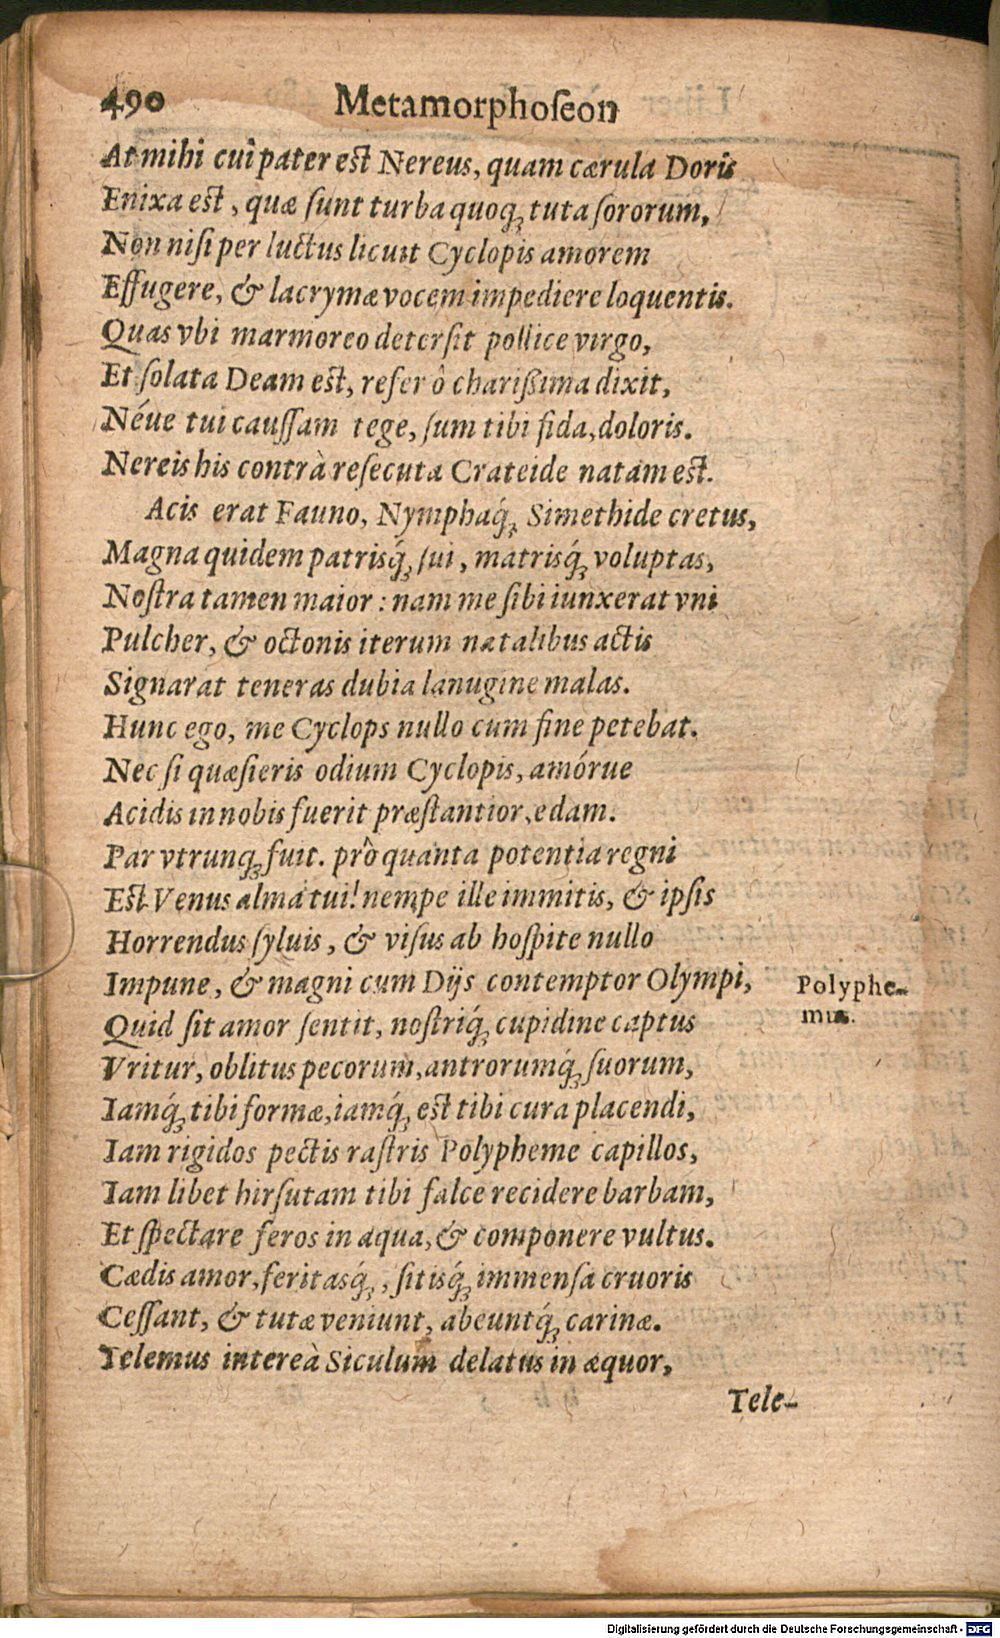 490 Metamorphoſeon
At mihi cui pater est Nereus, quam cærula Doris
Enixa est, quæ ſunt turba quoq; tuta ſororum,
Non niſi per luctus licuit Cyclopis amorem
Effugere, & lacrymæ vocem impediere loquentis.
Quas vbi marmoreo deterſit pollice virgo,
Et ſolata Deam est, refer ô chariſſima dixit,
Néue tui cauſſam tege, ſum tibi fida, doloris.
Nereis his contrà reſecuta Crateide natam est.
Acis erat Fauno, Nymphaq́; Simethide cretus,
Magna quidem patrisq́; ſui, matrisq́; voluptas,
Noſtra tamen maior: nam me ſibi iunxerat vni
Pulcher, & octonis iterum natalibus actis
Signarat teneras dubia lanugine malas.
Hunc ego, me Cyclops nullo cum fine petebat.
Nec ſi quæſieris odium Cyclopis, amórue
Acidis in nobis fuerit præſtantior, edam.
Par vtrunq; fuit. prô quanta potentia regni
Est Venus alma tui! nempe ille immitis, & ipſis
Horrendus ſyluis, & viſus ab hoſpite nullo
Impune, & magni cum Dijs contemptor Olympi,
Polyphe-
mus.
Quid ſit amor ſentit, noſtriq́; cupidine captus
Vritur, oblitus pecorum, antrorumq́; ſuorum,
Iamq́; tibi formæ, iamq́; est tibi cura placendi,
Iam rigidos pectis raſtris Polypheme capillos,
Iam libet hirſutam tibi falce recidere barbam,
Et ſpectare feros in aqua, & componere vultus.
Cædis amor, feritasq́;, ſitisq́; immenſa cruoris
Ceſſant, & tutæ veniunt, abeuntq́; carinæ.
Telemus intereà Siculum delatus in æquor,
Tele-
Digitalisierung gefördert durch die Deutsche Forschungsgemeinschaft - DFG